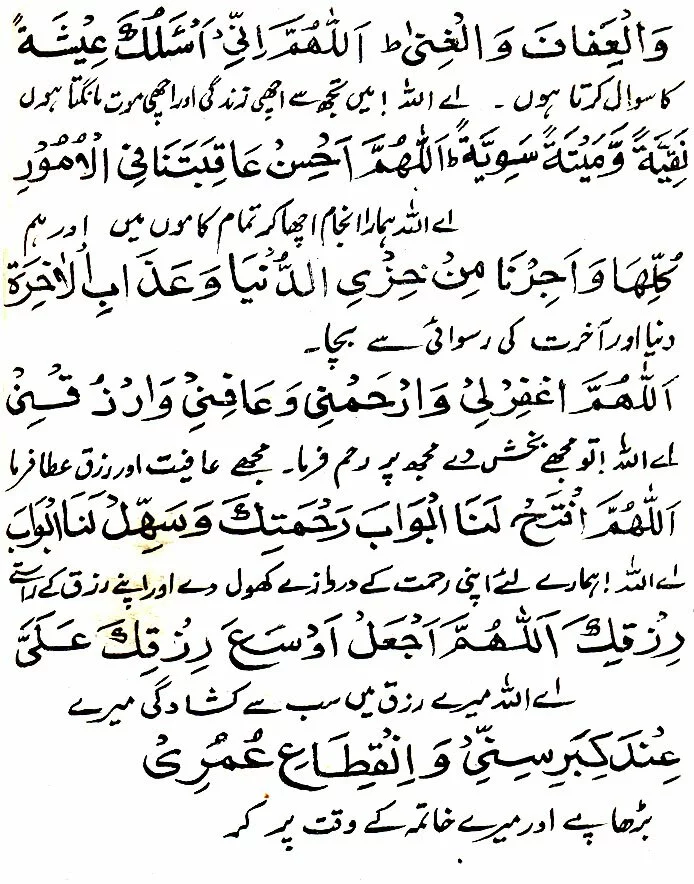 وَالْعِفَافَ وَالْغِنٰی ط اَللّٰهُمَّ اِنِّیْ اَسْئَلُكَ عِیْشَةً
کا سوال کرتا ہوں ۔ اے اللہ ! میں تجھ سے اچھی زندگی اور اچھی موت مانگتا ہوں
نَقِیَّةً وَّمِیْتَةً سَوِیَّةً ط اَللّٰهُمَّ اَحْسِنْ عَاقِبَتَنَا فِی الْاُمُوْرِ
اے اللہ ہمارا انجام اچھا کر تمام کاموں میں اور ہم
كُلِّهَا وَاَجِرْنَا مِنْ خِزْیِ الدُّنْیَا وَعَذَابِ الْاٰخِرَةِ
دنیا اور آخرت کی رسوائی سے بچا۔
اَللّٰهُمَّ اغْفِرْلِیْ وَارْحَمْنِیْ وَعَافِنِیْ وَارْزُقْنِیْ
اے اللہ ! تو مجھے بخش دے مجھ پر رحم فرما۔ مجھے عافیت اور رزق عطا فرما
اَللّٰهُمَّ افْتَحْ لَنَا اَبْوَابَ رَحْمَتِكَ وَسَهِّلْ لَنَا اَبْوَابَ
اے اللہ ! ہمارے لئے اپنی رحمت کے دروازے کھول دے اور اپنے رزق کے راستے
رِزْقِكَ اَللّٰهُمَّ اجْعَلْ اَوْسَعَ رِزْقِكَ عَلَیَّ
اے اللہ میرے رزق میں سب سے کشادگی میرے
عِنْدَ كِبَرِ سِنِّیْ وَانْقِطَاعِ عُمُرِیْ
بڑھاپے اور میرے خاتمہ کے وقت پر کر